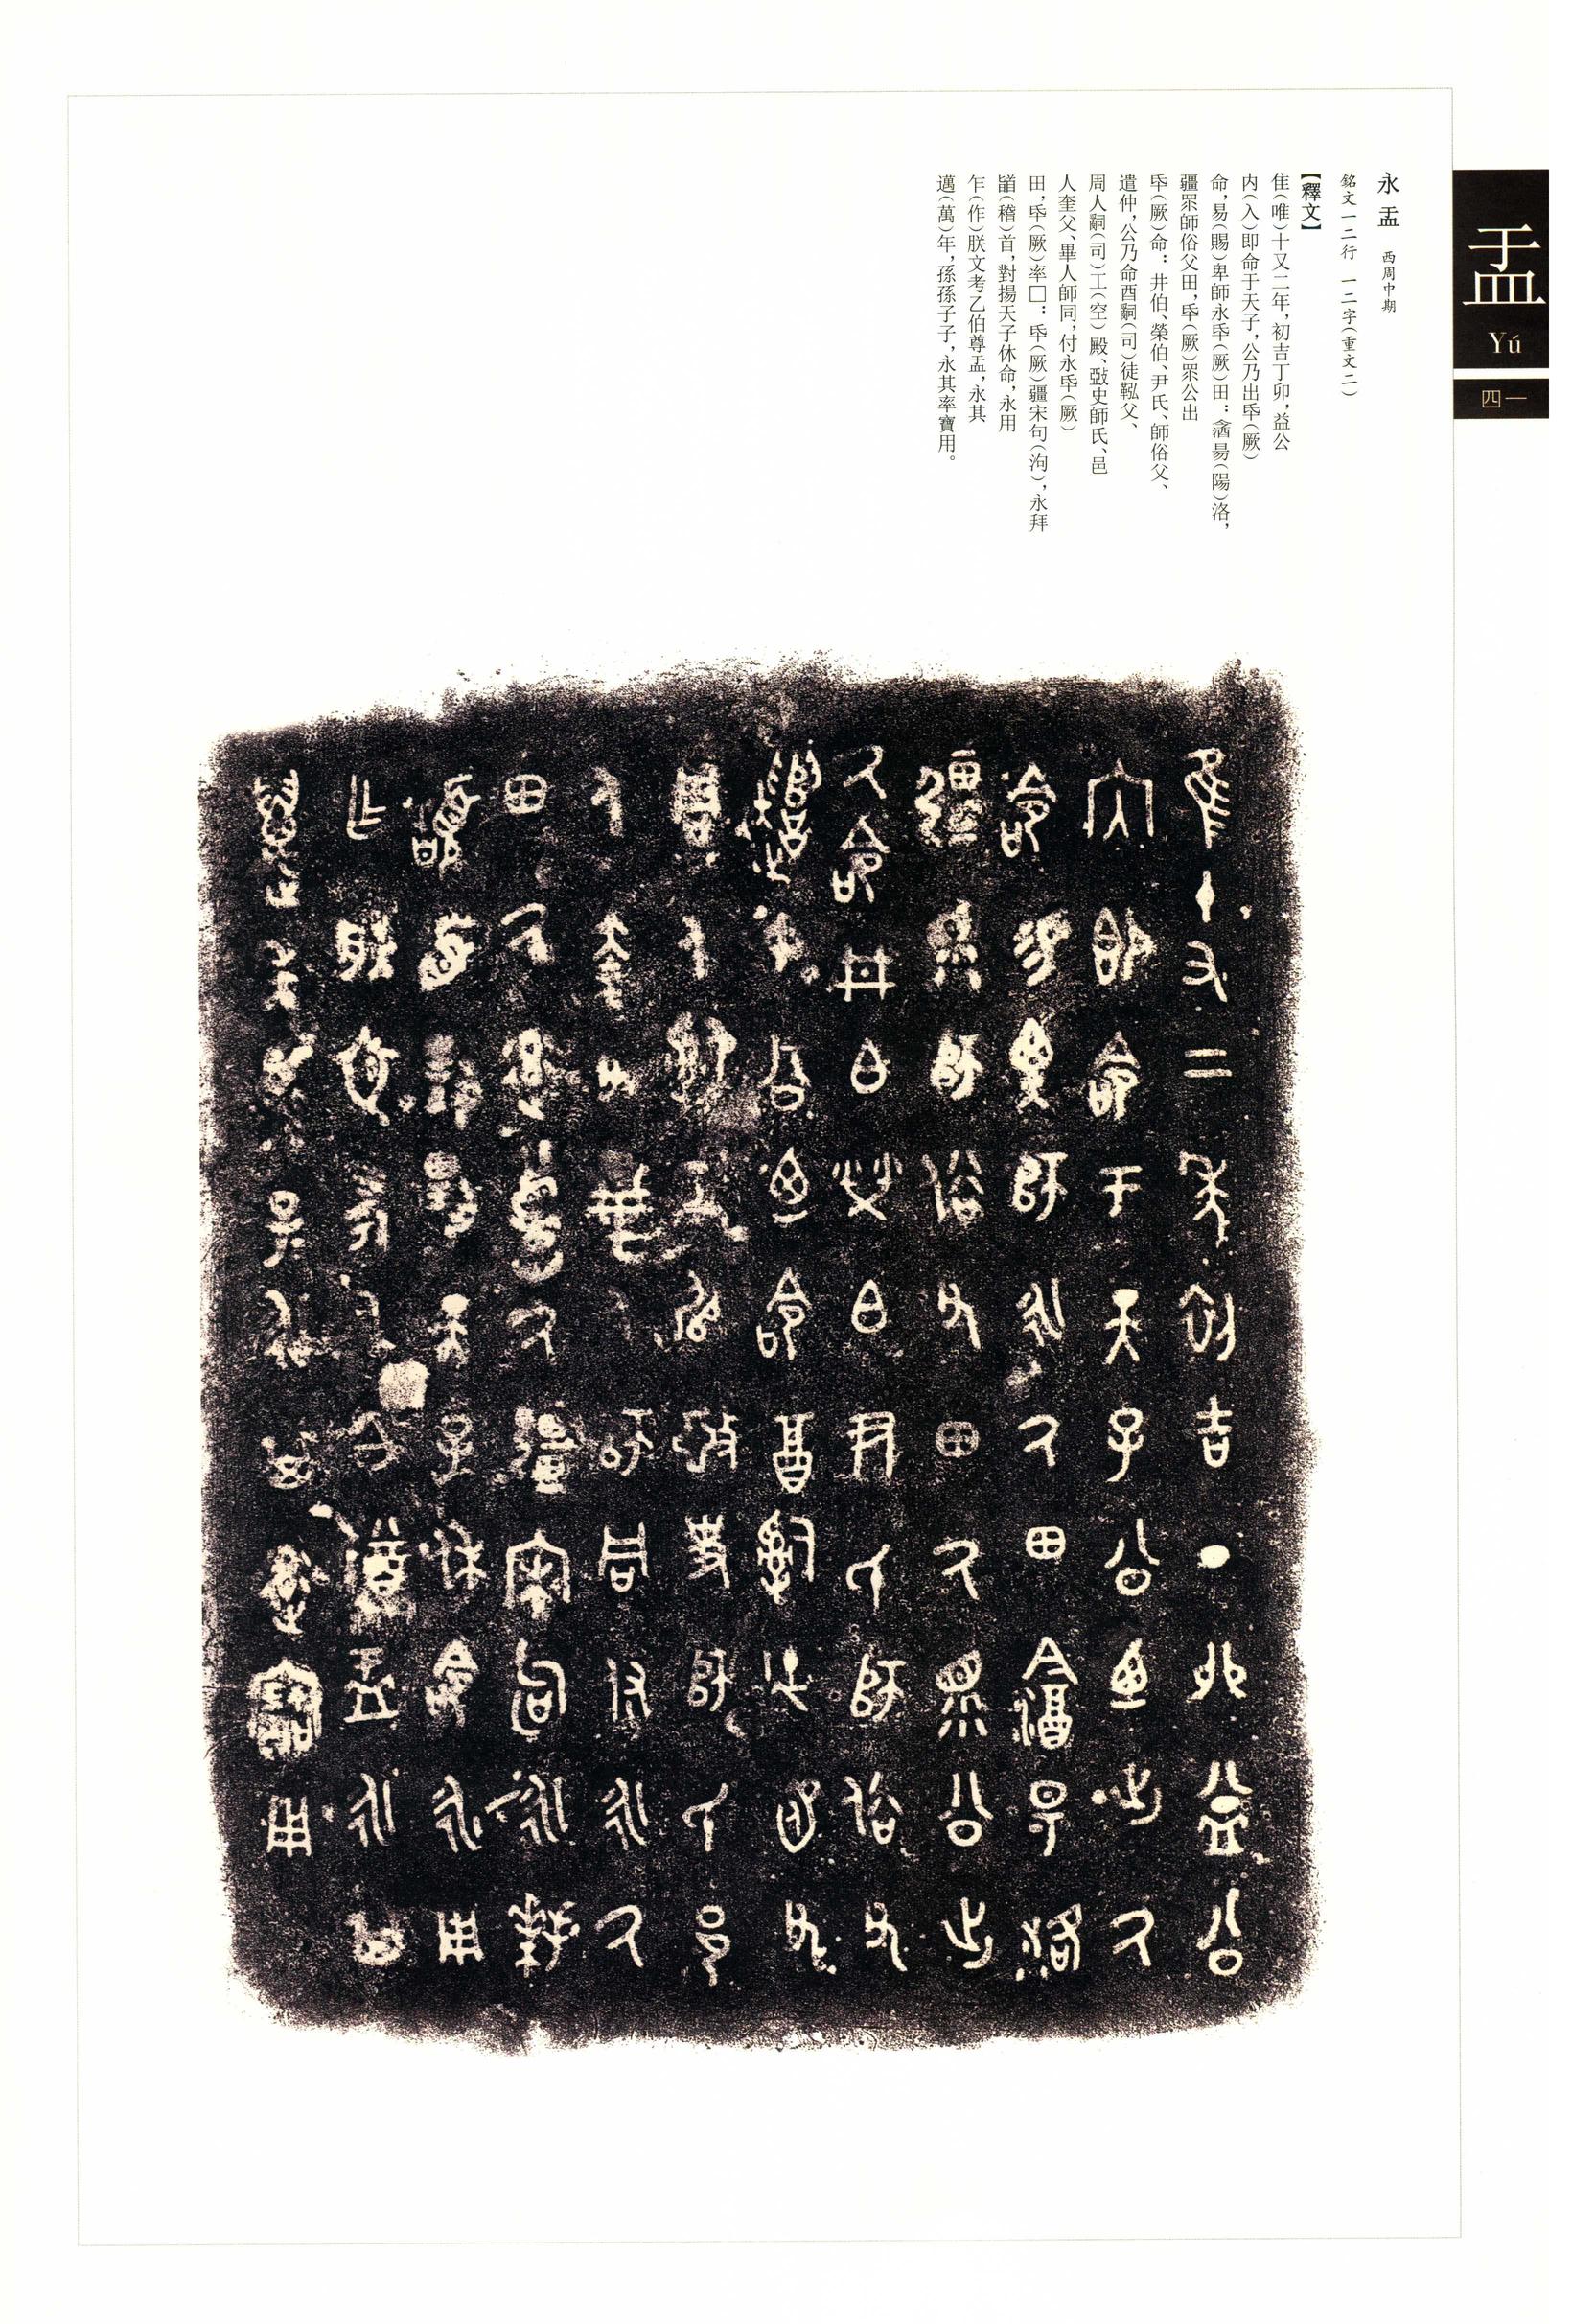 盂
Yú
四一
永盂 西周中期
銘文一二行 一二字(重文二)
【釋文】
隹(唯)十又二年,初吉丁卯,益公
内(入)即命于天子,公乃出氒(厥)
命,易(賜)畀師永氒(厥)田:陰昜(陽)洛,
疆眔師俗父田,氒(厥)眔公出
氒(厥)命:井伯、榮伯、尹氏、師俗父、
遣仲,公乃命酉嗣(司)徒父、
周人嗣(司)工(空)殿、史師氏、邑
人奎父、畢人師同,付永氒(厥)
田,氒(厥)率□:氒(厥)疆宋句(泃),永拜
(稽)首,對揚天子休命,永用
乍(作)朕文考乙伯尊盂,永其
邁(萬)年,孫孫子子,永其率寶用。